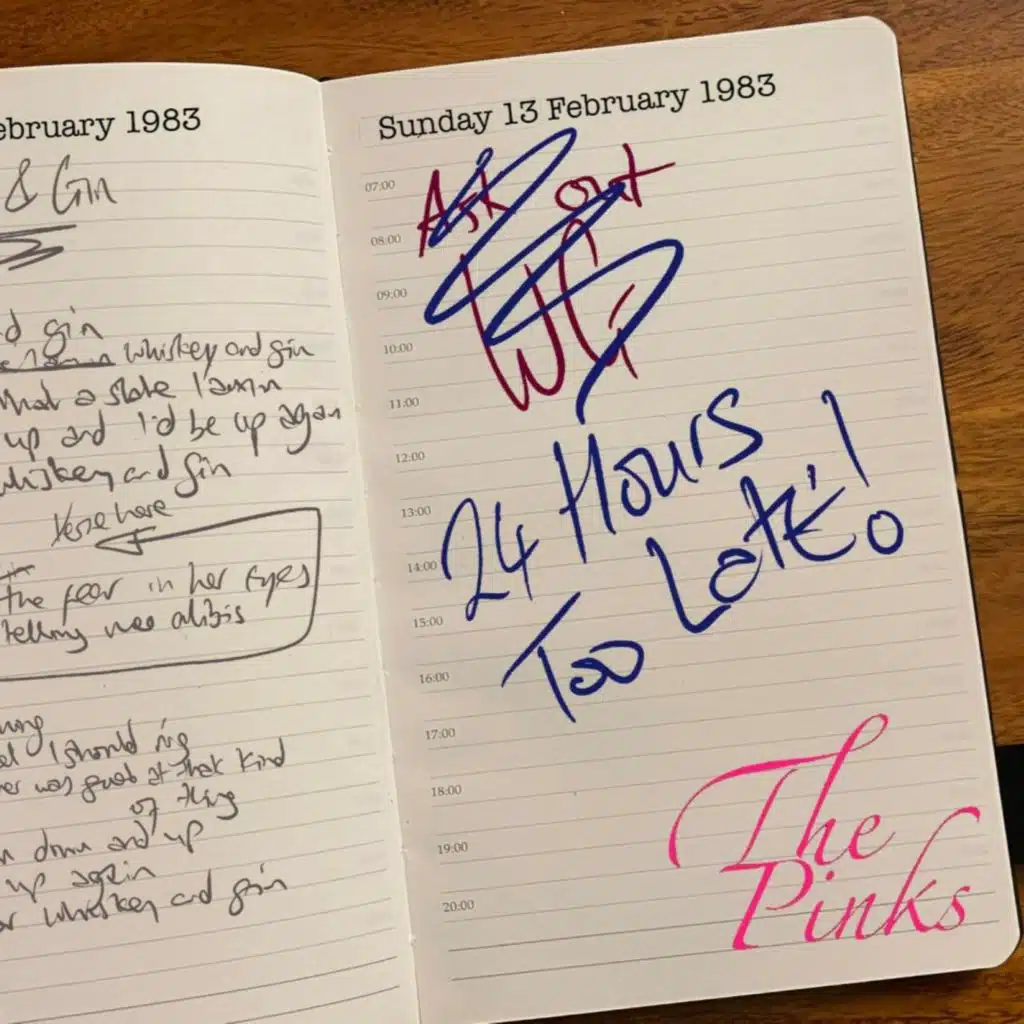 ebruary 1983
& Gin
d gin
whiskey and gin
what a state I am in
up and I'd be up again
whiskey and gin
Verse here
the fear in her eyes
telling me alibis
I should ring
was good at that kind
of thing
down and up
up again
whiskey and gin
Sunday 13 February 1983
07:00
Ask out
08:00
09:00
10:00
11:00
12:00
24 Hours
13:00
14:00
Too Late!
15:00
16:00
17:00
18:00
19:00
20:00
The
Pinks